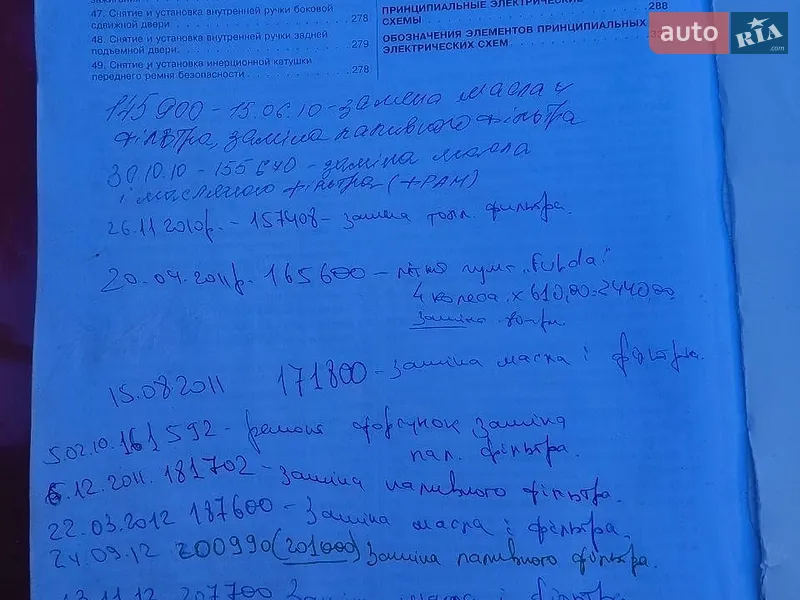 47. Снятие и установка внутренней ручки боковой
сдвижной двери . . . . . 278
48. Снятие и установка внутренней ручки задней
подъемной двери. . . . . 279
49. Снятие и установка инерционной катушки
переднего ремня безопасности . . . . . 278
ПРИНЦИПИАЛЬНЫЕ ЭЛЕКТРИЧЕСКИЕ
СХЕМЫ . . . . . 288
ОБОЗНАЧЕНИЯ ЭЛЕМЕНТОВ ПРИНЦИПИАЛЬНЫХ
ЭЛЕКТРИЧЕСКИХ СХЕМ . . . . .
auto RIA.com
145900 - 15.06.10 - замена масла и
фільтра, заміна паливного фільтра
30.10.10 - 155670 - заміна масла
і масляного фільтра (+РАМ)
26.11.2010р. - 157408 - замена топл. фильтра.
20.04.2011р. 165600 - "Fulda"
4 колеса x 610,00=2440,00
заміна
15.08.2011 171800 - заміна масла і фільтра.
5.02.10. 161592 - ремонт форсунок заміна
пал. фільтра.
6.12.2011. 181702 - заміна паливного фільтра.
22.03.2012 187600 - заміна масла і фільтра.
24.09.12 200990 (201000) заміна паливного фільтра.
13.11.12 207700 заміна масла і фільтра.